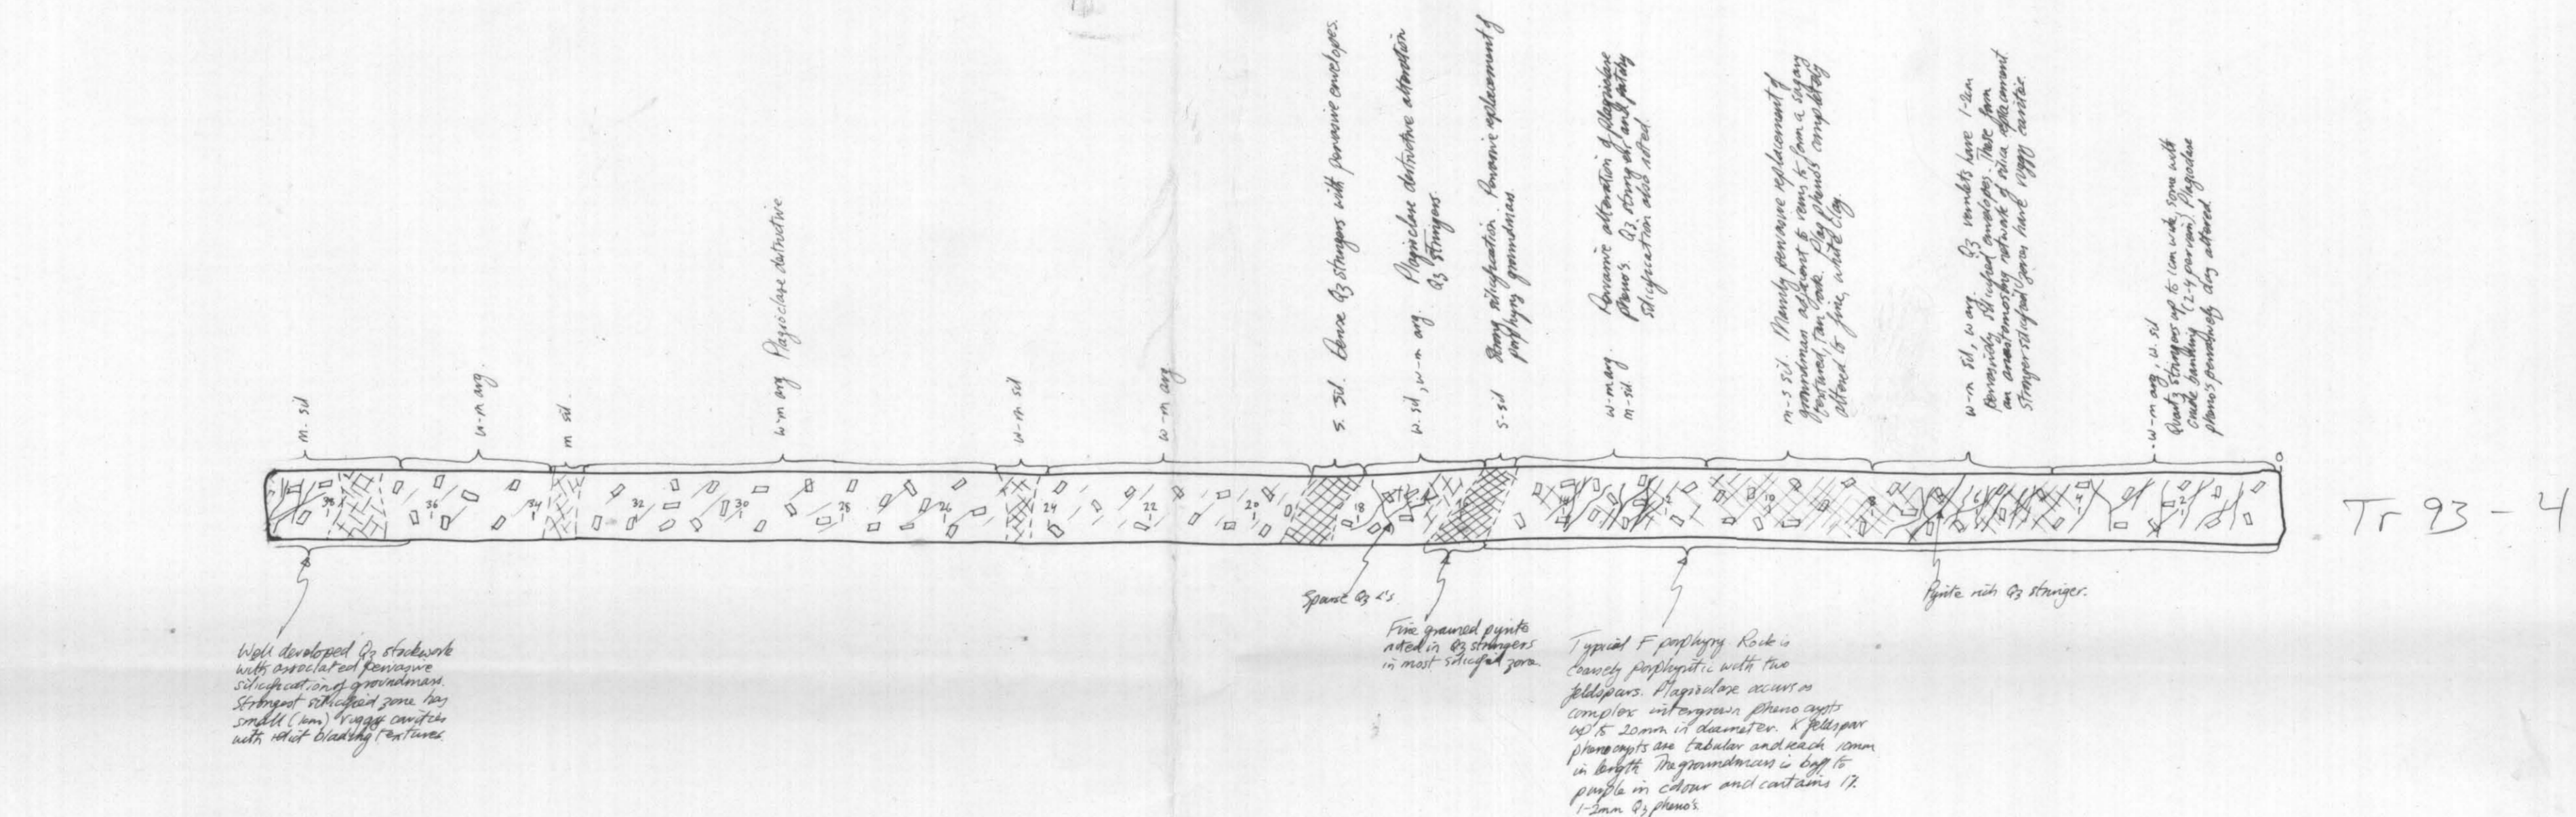 m-sil
w-m arg.
m sil.
w-m arg Plagioclase destructive
w-m sil
w-m arg
s. sil. Dense Qz stringers with pervasive envelopes.
w. sil, w-m arg. Plagioclase destructive alteration
Qz stringers.
s-sil Strong silification. Pervasive replacement of
porphyry groundmass.
w-m arg. Pervasive alteration of plagioclase
m-sil. pheno's. Qz stringer and patchy
silicification also noted
m-s sil. Mainly pervasive replacement of
groundmass adjacent to veins to form a sugary
textured, tan rock. Plag pheno's completely
altered to fine, white clay.
w-m sil, w arg. Qz veinlets have 1-2cm
pervasively silicified envelopes. These form
an anastomosing network of silica replacement.
Stronger silicified zones have vuggy cavities.
w-m arg, w. sil
Quartz stringers up to 1cm wide, some with
crude banking (2-4 per vein). Plagioclase
pheno's pervasively clay altered
38 36 34 32 30 28 26 24 22 20 18 12 10 8 6 4 2 0
Tr 93-4
Sparse Qz
Pyrite rich Qz stringer.
Fine grained pyrite
noted in Qz stringers
in most silicified zone.
Well developed Qz stockwork
with associated pervasive
silicification of groundmass.
Strongest silicified zone has
small (1cm) vuggy cavities
with relict blading textures.
Typical F porphyry. Rock is
coarsely porphyritic with two
feldspars. Plagioclase occurs as
complex intergrown phenocrysts
up to 20mm in diameter. K feldspar
phenocrypts are tabular and reach 10mm
in length. The groundmass is buff to
purple in colour and contains 1%
1-2mm Qz pheno's.